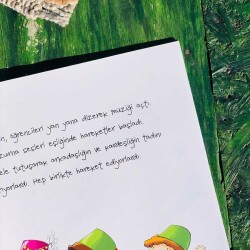 öğrencileri yan yana dizerek müziği açtı.
zurna sesleri eşliğinde hareketler başladı.
ele tutuşarak arkadaşlığın ve kardeşliğin tadını
Hep birlikte hareket ediyorlardı.